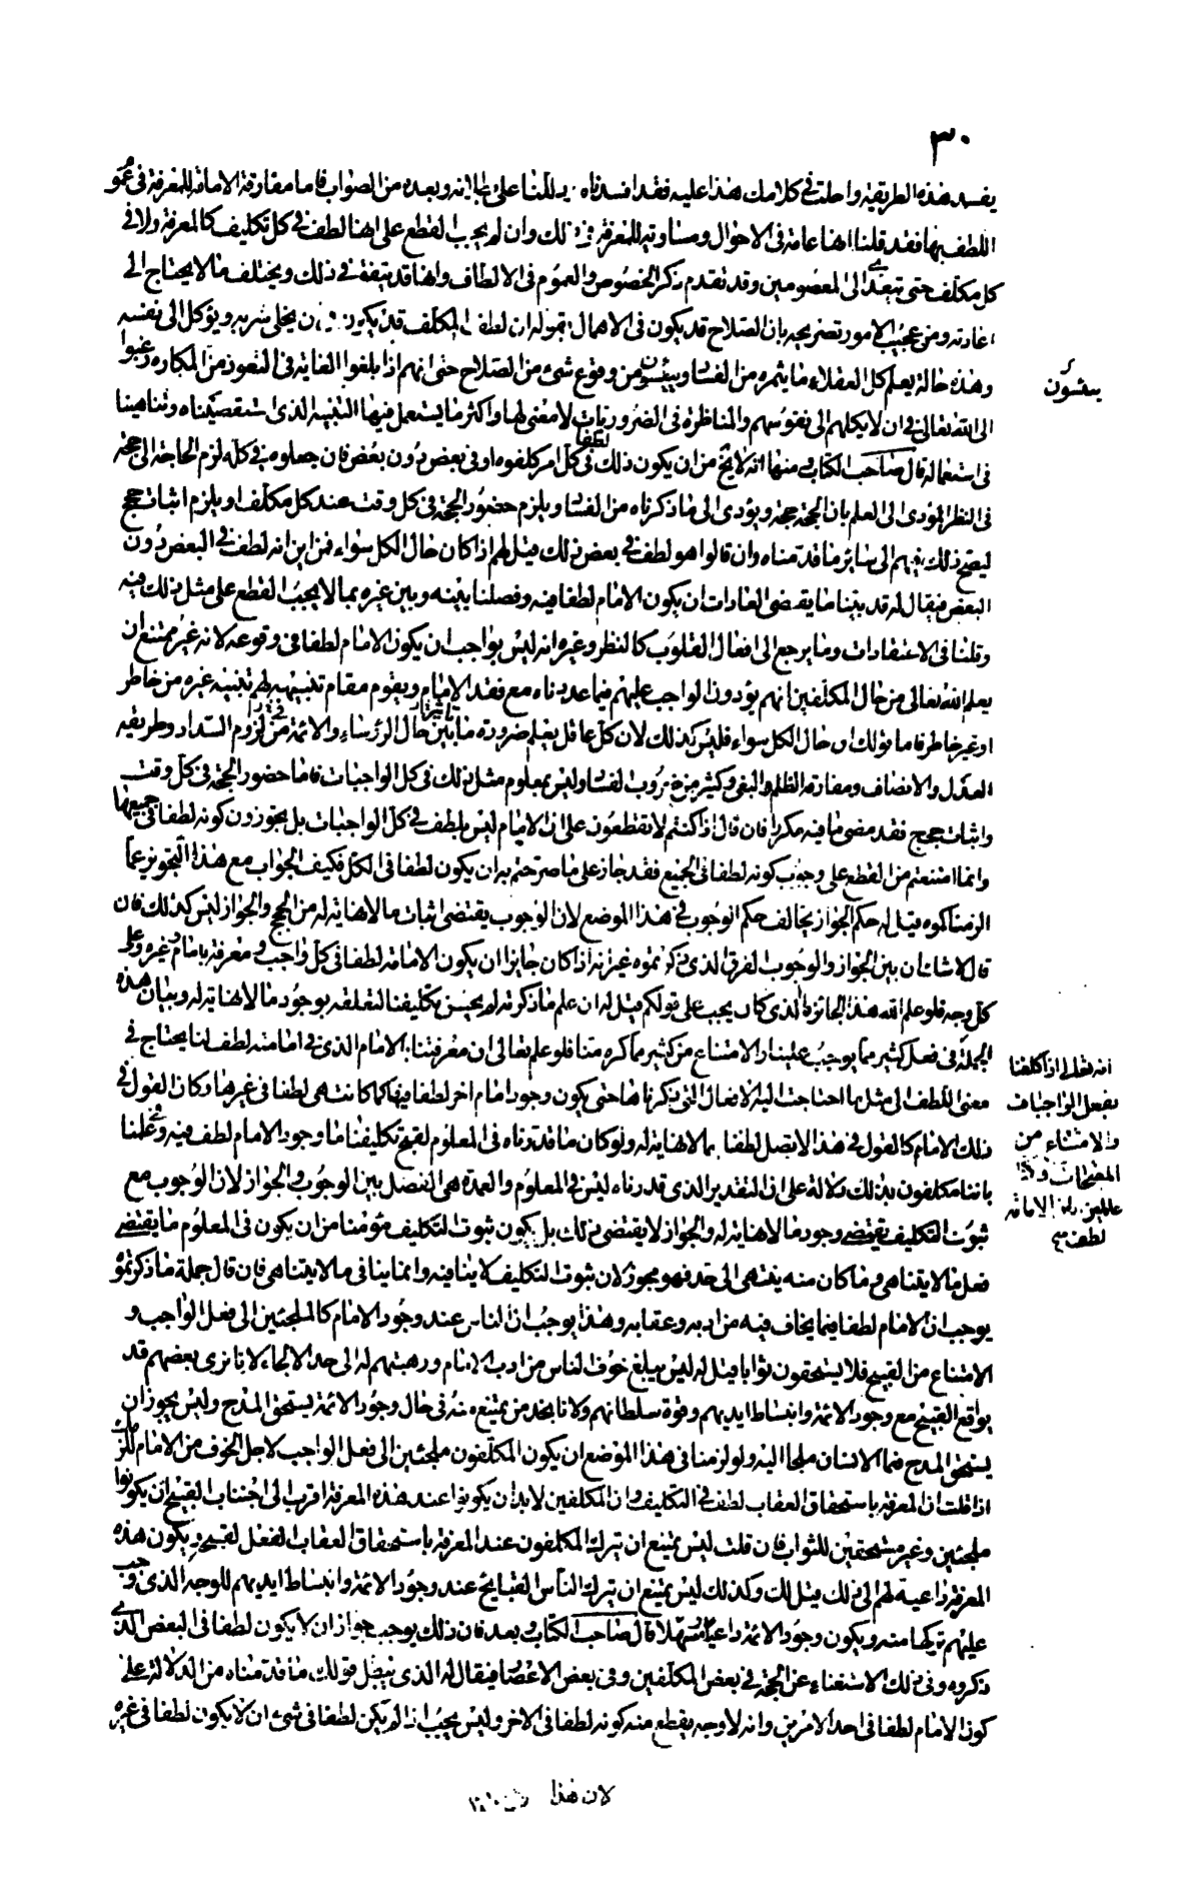 ٣٠
يفسد هذه الطريقة واحلت في كلامك هذا عليه فقد افسدناه ودللنا على بطلانه وبعده من الصواب فاما مفارقة الامامة للمعرفة في عموم
اللطف بها فقد قلنا انها عامة في الاحوال ومساوية للمعرفة في ذلك وان لم يجب القطع على انها لطف في كل تكليف كالمعرفة ولا في
كل مكلف حتى يتعدى الى المعصومين وقد تقدم ذكر الخصوص والعموم في الالطاف وانها قد يتفق في ذلك ويختلف فلا يحتاج الى
اعادته ومن عجيب الامور تصريحه بان الصلاح قد يكون في الاهمال بقوله ان لطف المكلف قد يكون في ان يخلى سربه ويوكل الى نفسه
وهذه حالة يعلم كل العقلاء ما يثمره من الفساد وييئسون من وقوع شيء من الصلاح حتى انهم اذا بلغوا الغاية في التعوذ من المكاره رغبوا
الى الله تعالى في ان لا يكلهم الى نفوسهم والمناظرة في الضروريات لا معنى لها واكثر ما يستعمل فيها التنبيه الذي استقصيناه وتناهينا
في استعماله قال صاحب الكتاب ومنها انه لا يخ من ان يكون ذلك لطفا في كل امر كلفوه او في بعض دون بعض فان جعلوه في كله لزم الحاجة الى حجة
في النظر المؤدي الى العلم بان الحجة حجة ويؤدي الى ما ذكرناه من الفساد ويلزم حضور الحجة في كل وقت عند كل مكلف او يلزم اثبات حجج
ليصح ذلك فيهم الى سائر ما قدمناه وان قالوا هو لطف في بعض ذلك قيل لهم اذا كان حال الكل سواء فمن اين انه لطف في البعض دون
البعض فيقال له قد بينا ما يقتضي العادات ان يكون الامام لطفا فيه وفصلنا بينه وبين غيره مما لا يجب القطع على مثل ذلك فيه
وقلنا في الاعتقادات وما يرجع الى افعال القلوب كالنظر وغيره انه ليس بواجب ان يكون الامام لطفا في وقوعه لانه غير ممتنع ان
يعلم الله تعالى من حال المكلفين انهم يؤدون الواجب عليهم فيما عددناه مع فقد الامام ويقوم مقام تنبيهه لهم تنبيه غيره من خاطر
او غير خاطر فاما قولك ان حال الكل سواء فليس كذلك لان كل عاقل يعلم ضرورة ما بين حال الرؤساء والائمة من تأثير في لزوم السداد وطريقه
العدل والانصاف ومفارقة الظلم والبغي وكثير من ضروب الفساد وليس بمعلوم مثل ذلك في كل الواجبات فاما حضور الحجة في كل وقت
واثبات حجج فقد مضى ما فيه مكررا فان قال اذا كنتم لا تقطعون على ان الامام ليس بلطف في كل الواجبات بل تجوزون كونه لطفا في جميعها
وانما امتنعتم من القطع على وجوب كونه لطفا في الجميع فقد جاز على ما صرحتم به ان يكون لطفا في الكل فكيف الجواب مع هذا التجويز عما
الزمناكموه قيل له حكم الجواز يخالف حكم الوجوب في هذا الموضع لان الوجوب يقتضي اثبات ما لا نهاية له من الحجج والجواز ليس كذلك فان
قال لا شاءان بين الجواز والوجوب الفرق الذي ذكرتموه غير انه اذا كان جايزا ان يكون الامامة لطفا في كل واجب ومعرفة بامام وغيره وعلى
كل وجه فلو علم الله هذا الجائز ما الذي كان يجب على قولكم قيل له ان علم ما ذكرته لم يحسن تكليفنا لتعلقه بوجود ما لا نهاية له وبيان هذه
الجملة في فعل كثير مما يوجب علينا والامتناع من كثير مما كره منا فلو علم تعالى ان معرفتنا بالامام الذي في امامته لطف لنا يحتاج في
معنى اللطف الى مثل ما احتاجت اليه الافعال التي ذكرناها حتى يكون وجود امام اخر لطفا فيها كما كانت هي لطفا في غيرها وكان القول في
ذلك الامام كالقول في هذا لاتصل لطفا بما لا نهاية له ولو كان ما قدرناه في المعلوم لقبح تكليفنا ما وجود الامام لطف فيه وفي علمنا
باننا مكلفون بذلك دلالة على ان التقدير الذي قدرناه ليس في المعلوم والعمدة هي الفصل بين الوجوب والجواز لان الوجوب مع
ثبوت التكليف يقتضي وجود ما لا نهاية له والجواز لا يقتضي ذلك بل يكون ثبوت التكليف مؤمنا من ان يكون في المعلوم ما يقتضي
فعل ما لا يتناهى وما كان منه ينتهي الى حد فهو مجوز لان ثبوت التكليف لا ينافيه وانما ينافي ما لا يتناهى فان قال جملة ما ذكرتموه
يوجب ان الامام لطفا فيما يخاف فيه من ادبه وعقابه وهذا يوجب ان الناس عند وجود الامام كالملجئين الى فعل الواجب و
الامتناع من القبيح فلا يستحقون ثوابا قيل له ليس يبلغ خوف الناس من ادب الامام ورهبتهم له الى حد الالجاء لانا نرى بعضهم قد
يواقع القبيح مع وجود الائمة وانبساط ايديهم وقوة سلطانهم ولانا نجد من يمتنع منه في حال وجود الائمة يستحق المدح وليس يجوز ان
يستحق المدح فيما الانسان ملجأ اليه ولو لزمنا في هذا الموضع ان يكون المكلفون ملجئين الى فعل الواجب لاجل الخوف من الامام للزمك
اذا قلت ان المعرفة باستحقاق العقاب لطف في التكليف وان المكلفين لا بد ان يكونوا عند هذه المعرفة اقرب الى اجتناب القبيح ان يكونوا
ملجئين وغير مستحقين للثواب فان قلت ليس يمتنع ان يترك المكلفون عند المعرفة باستحقاق العقاب الفعل لقبحه ويكون هذه
المعرفة داعية لهم الى ذلك قيل لك وكذلك ليس يمتنع ان يترك الناس القبايح عند وجود الائمة وانبساط ايديهم للوجه الذي وجب
عليهم تركها منه ويكون وجود الائمة داعيا ومسهلا قال صاحب الكتاب وبعد فان ذلك يوجب جواز ان لا يكون لطفا في البعض الذي
ذكروه وفي ذلك الاستغناء عن الحجة في بعض المكلفين وفي بعض الاعصار فيقال له الذي يبطل قولك ما قدمناه من الدلالة على
كون الامام لطفا في احد الامرين وانه لا وجه يقطع منه كونه لطفا في الاخر وليس يجب اذا لم يكن لطفا في شيء ان لا يكون لطفا في غيره
ييئسون
انه تعالى اذا كلفنا
بفعل الواجبات
والامتناع من
المقبحات
الامامة
لطف
لان هذا